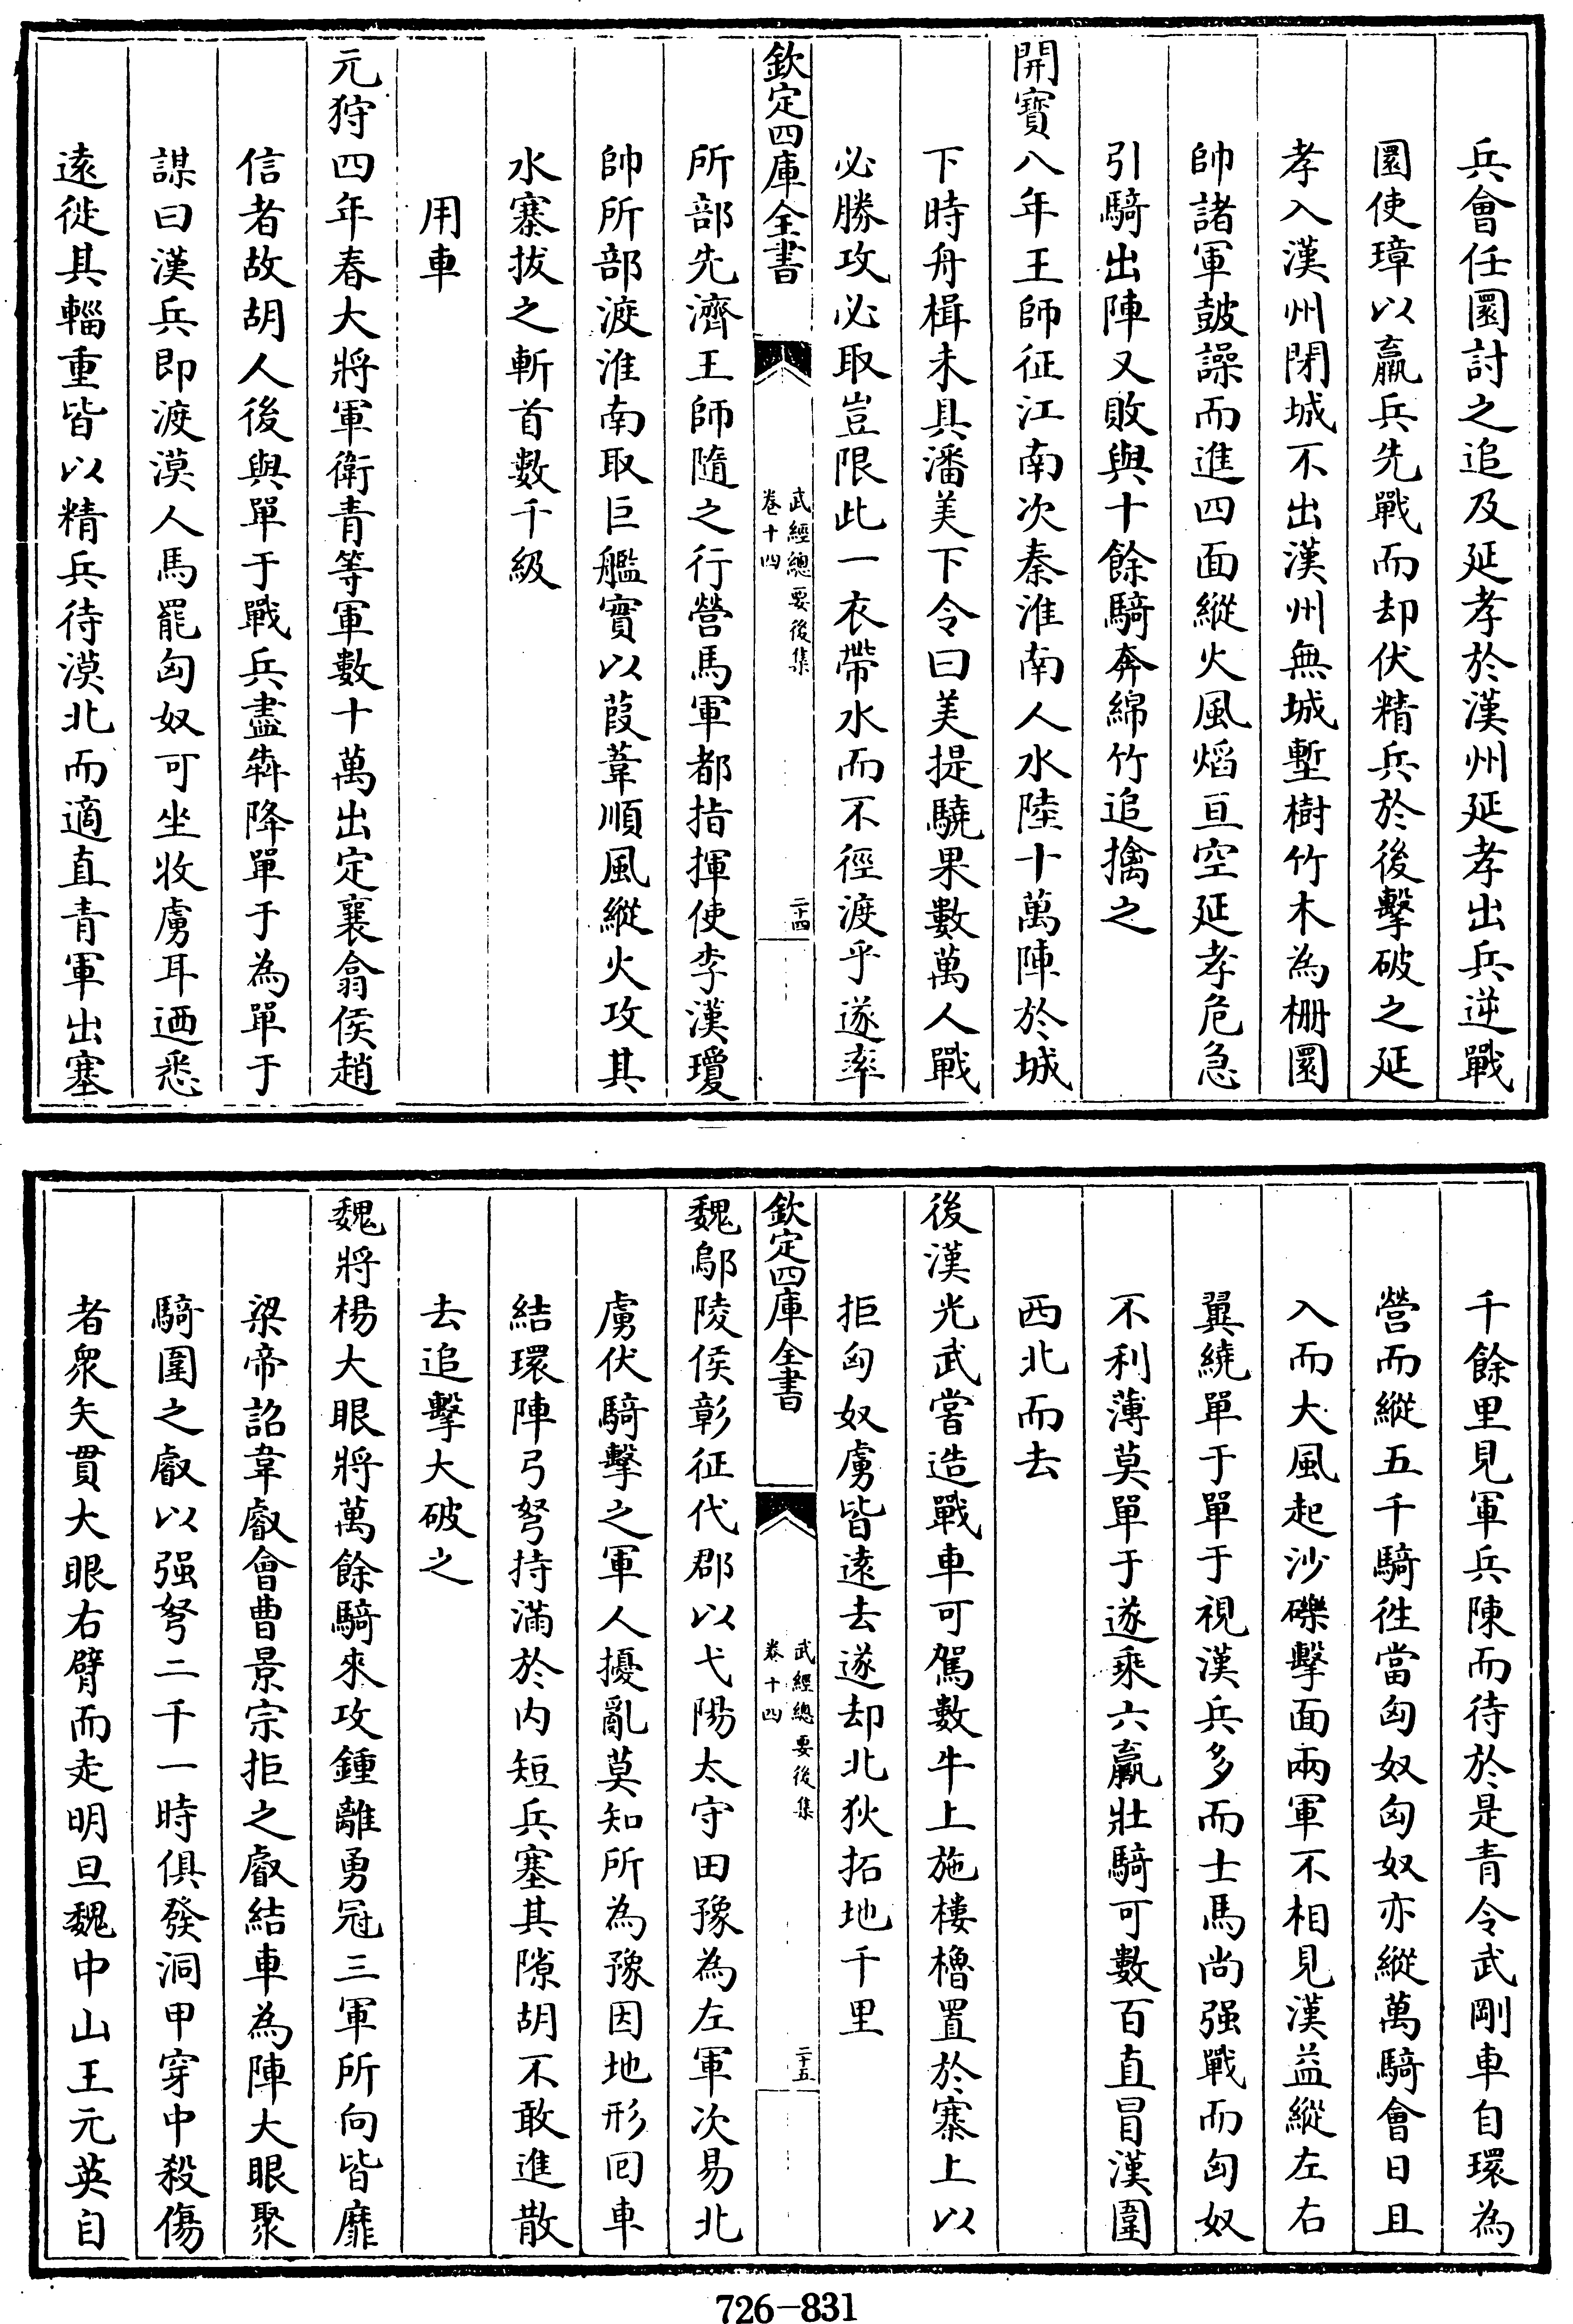 兵會任圜討之追及延孝於漢州延孝出兵逆戰
圜使璋以羸兵先戰而却伏精兵於後擊破之延
孝入漢州閉城不出漢州無城塹樹竹木為栅圜
帥諸軍鼓譟而進四面縱火風熖亘空延孝危急
引騎出陣又敗與十餘騎奔綿竹追擒之
開寳八年王師征江南次秦淮南人水陸十萬陣於城
下時舟楫未具潘美下令曰美提驍果數萬人戰
必勝攻必取豈限此一衣帶水而不徑渡乎遂率
欽定四庫全書
武經總要後集
卷十四
二十四
所部先濟王師隨之行營馬軍都指揮使李漢瓊
帥所部渡淮南取巨艦實以葭葦順風縱火攻其
水寨拔之斬首數千級
用車
元狩四年春大將軍衛青等軍數十萬出定襄翕侯趙
信者故胡人後與單于戰兵盡犇降單于為單于
謀曰漢兵即渡漠人馬罷匈奴可坐收虜耳迺悉
遠徙其輜重皆以精兵待漠北而適直青軍出塞
千餘里見軍兵陳而待於是青令武剛車自環為
營而縱五千騎徃當匈奴匈奴亦縱萬騎會日且
入而大風起沙礫擊面兩軍不相見漢益縱左右
翼繞單于單于視漢兵多而士馬尚强戰而匈奴
不利薄莫單于遂乘六羸壯騎可數百直冒漢圍
西北而去
後漢光武嘗造戰車可駕數牛上施樓櫓置於寨上以
拒匈奴虜皆遠去遂却北狄拓地千里
欽定四庫全書
武經總要後集
卷十四
二十五
魏鄢陵侯彰征代郡以弋陽太守田豫為左軍次易北
虜伏騎擊之軍人擾亂莫知所為豫因地形回車
結環陣弓弩持滿於内短兵塞其隙胡不敢進散
去追擊大破之
魏將楊大眼將萬餘騎來攻鍾離勇冠三軍所向皆靡
梁帝詔韋叡會曹景宗拒之叡結車為陣大眼聚
騎圍之叡以强弩二千一時俱發洞甲穿中殺傷
者衆矢貫大眼右臂而走明旦魏中山王元英自
726-831